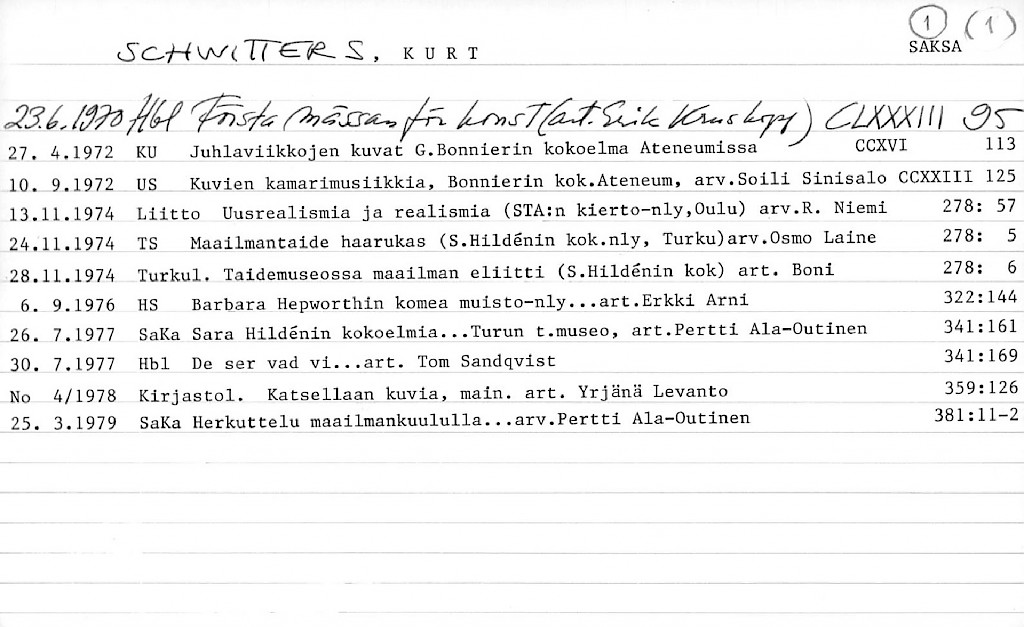 1 (1)
SAKSA
SCHWITTERS, KURT
23.6.1970 Hbl Första mässan för konst (art. Erik Kruskopf) CLXXXIII 95
27. 4.1972 KU Juhlaviikkojen kuvat G.Bonnierin kokoelma Ateneumissa CCXVI 113
10. 9.1972 US Kuvien kamarimusiikkia, Bonnierin kok.Ateneum, arv.Soili Sinisalo CCXXIII 125
13.11.1974 Liitto Uusrealismia ja realismia (STA:n kierto-nly,Oulu) arv.R. Niemi 278: 57
24.11.1974 TS Maailmantaide haarukas (S.Hildénin kok.nly, Turku)arv.Osmo Laine 278: 5
28.11.1974 Turkul. Taidemuseossa maailman eliitti (S.Hildénin kok) art. Boni 278: 6
6. 9.1976 HS Barbara Hepworthin komea muisto-nly...art.Erkki Arni 322:144
26. 7.1977 SaKa Sara Hildénin kokoelmia...Turun t.museo, art.Pertti Ala-Outinen 341:161
30. 7.1977 Hbl De ser vad vi...art. Tom Sandqvist 341:169
No 4/1978 Kirjastol. Katsellaan kuvia, main. art. Yrjänä Levanto 359:126
25. 3.1979 SaKa Herkuttelu maailmankuululla...arv.Pertti Ala-Outinen 381:11-2